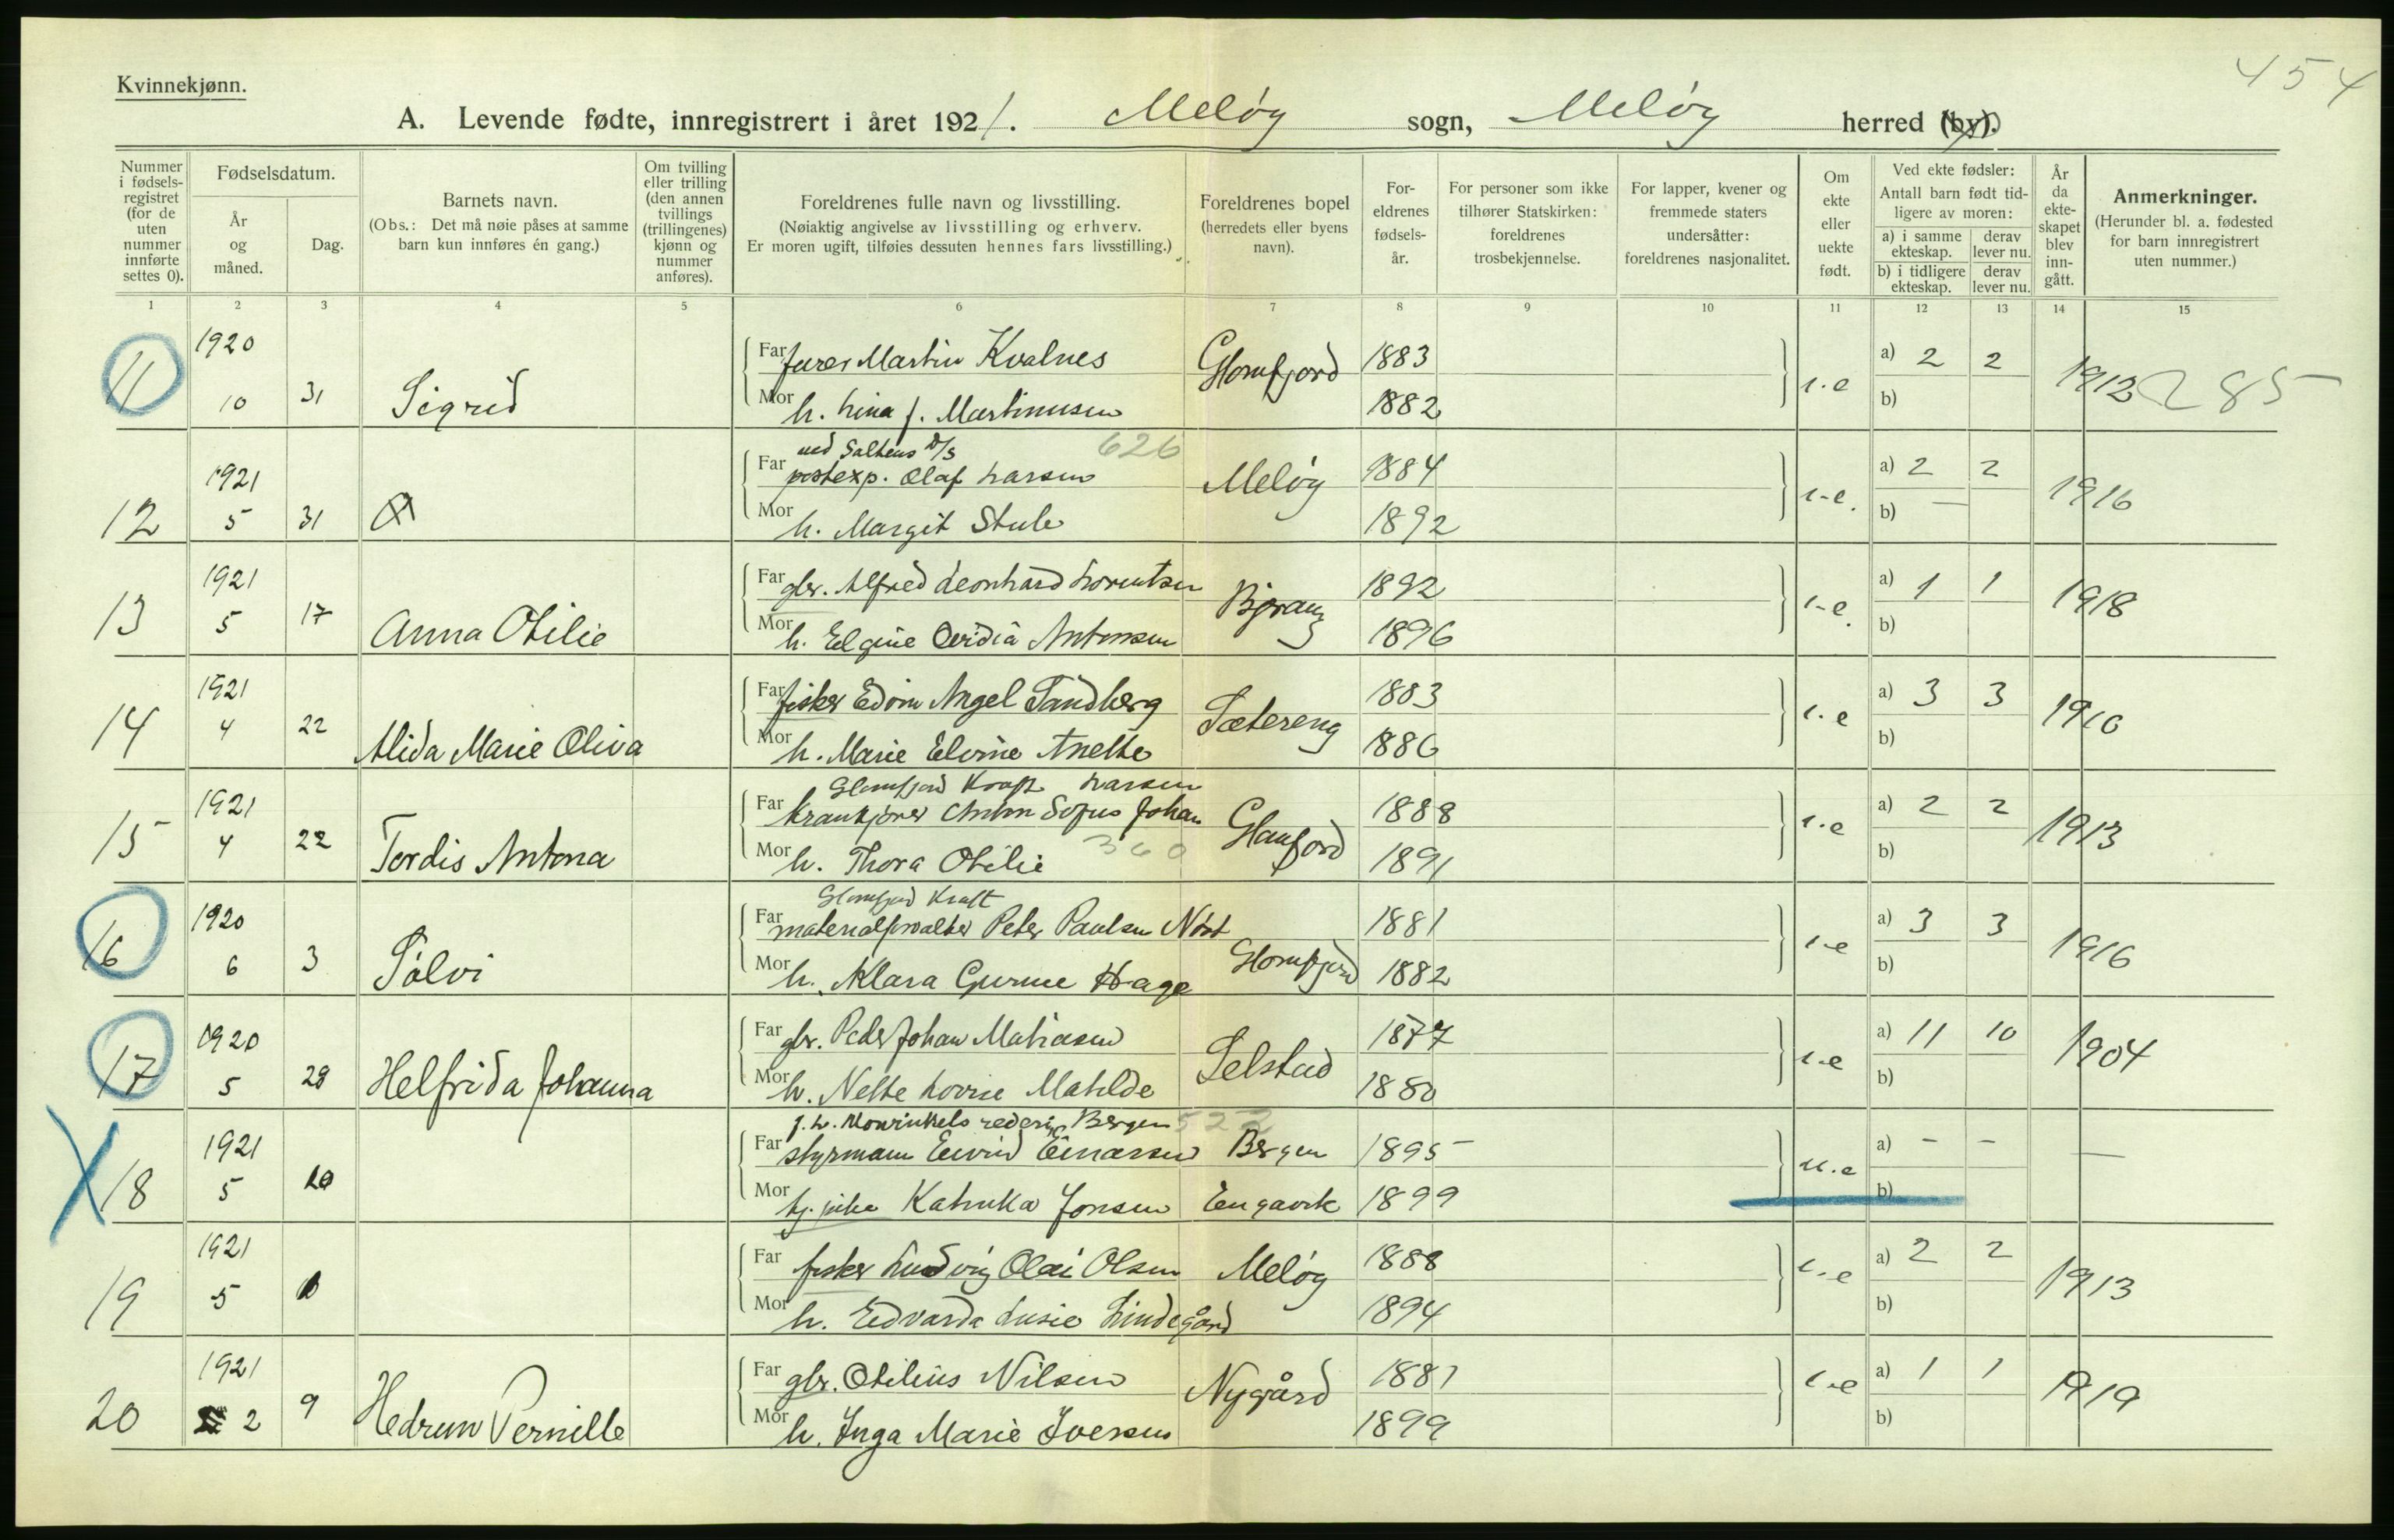 454
Kvinnekjønn.
A. Levende fødte, innregistrert i året 1921. Meløy sogn, Meløy herred (by).
Nummer i fødsels-registret (for de uten nummer innførte settes 0).
Fødselsdatum.
År og måned.
Dag.
Barnets navn.
(Obs.: Det må nøie påses at samme barn kun innføres én gang.)
Om tvilling eller trilling (den annen tvillings (trillingenes) kjønn og nummer anføres).
Foreldrenes fulle navn og livsstilling.
(Nøiaktig angivelse av livsstilling og erhverv.
Er moren ugift, tilføies dessuten hennes fars livsstilling.)
Foreldrenes bopel (herredets eller byens navn).
For-eldrenes fødsels-år.
For personer som ikke tilhører Statskirken: foreldrenes trosbekjennelse.
For lapper, kvener og fremmede staters undersåtter: foreldrenes nasjonalitet.
Om ekte eller uekte født.
Ved ekte fødsler: Antall barn født tid-ligere av moren:
a) i samme ekteskap. derav lever nu.
b) i tidligere ekteskap. derav lever nu.
År da ekte-skapet blev inn-gått.
Anmerkninger.
(Herunder bl. a. fødested for barn innregistrert uten nummer.)
1 2 3 4 5 6 7 8 9 10 11 12 13 14 15
11 1920 10 31 Sigrid
Far Martin Kvalnes Glomfjord 1883
Mor h. Lina J. Martinusen 1882
a) 2 2 b) 1912 285
12 1921 5 31
ved Saltens D/S 626
Far postexp. Olaf Larsen Meløy 1884
Mor h. Margit Stub 1892
a) 2 2 b) — 1916
13 1921 5 17 Anna Otilie
Far gbr. Alfred Leonhard Lorentsen 1892
Mor h. Elgine Ovidia Antonsen 1896
a) 1 1 b) 1918
14 1921 4 22 Alida Marie Oliva
Far fisker Edvin Angel Sandberg Sætereng 1883
Mor h. Marie Elvine Anette 1886
a) 3 3 b) 1910
15 1921 4 22 Tordis Antona
Glomfjord Kraft Larsen
Far krankjører Anton Sofus Johan Glomfjord 1888
Mor h. Thora Otilie 360 1891
a) 2 2 b) 1913
16 1920 6 3 Sølvi
Glomfjord Kraft
Far materialforvalter Peter Paulsen Glomfjord 1881
Mor h. Klara Gurine Hage 1882
a) 3 3 b) 1916
17 1920 5 28 Helfrida Johanna
Far gbr. Peder Johan Matiasen Selstad 1877
Mor h. Nette Lovise Matilde 1880
a) 11 10 b) 1904
18 1921 5 10
J. L. Mowinkels rederi, Bergen 522
Far styrmann Eivind Einarsen Bergen 1895
Mor Katinka Jonsen Engavik 1899
u.e a) - - b) —
19 1921 5
Far fisker Ludvig Olai Olsen Meløy 1888
Mor h. Edvarda Lusie Lindegård 1894
a) 2 2 b) 1913
20 1921 2 9 Hedrun Pernille
Far gbr. Otilius Nilsen Nygård 1881
Mor h. Inga Marie Iversen 1899
a) 1 1 b) 1919